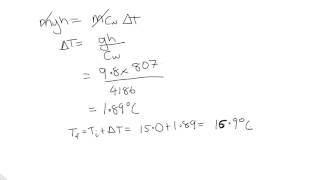 mgh = mCw ΔT
ΔT = gh / Cw
= 9.8 x 807 / 4186
= 1.89°C
Tf = Ti + ΔT = 15.0 + 1.89 = 16.9°C